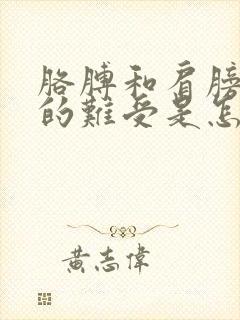 胳膊和肩膀
的難受是怎
黃志偉